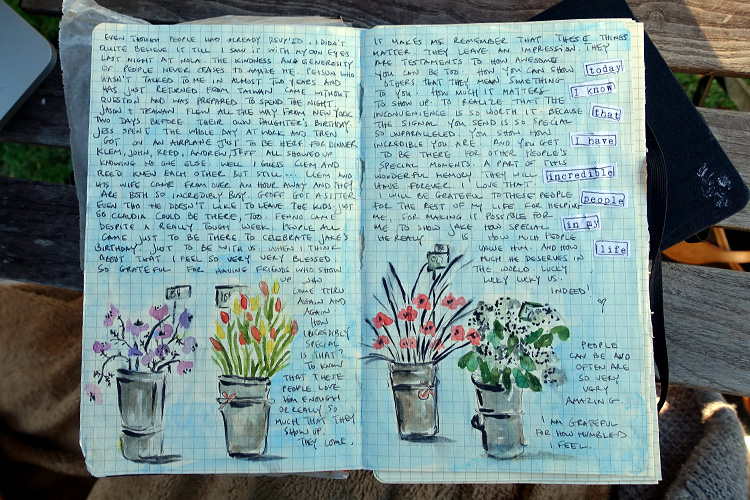 EVEN THOUGH PEOPLE HAD ALREADY RSVP'ED. I DIDN'T
QUITE BELIEVE IT TILL I SAW IT WITH MY OWN EYES
LAST NIGHT AT NOLA. THE KINDNESS AND GENEROSITY
OF PEOPLE NEVER CEASES TO AMAZE ME. WHO
HASN'T TALKED TO ME IN ALMOST TWO YEARS AND
HAS JUST RETURNED FROM TAIWAN CAME WITHOUT
QUESTION AND WAS PREPARED TO SPEND THE NIGHT.
JASON + FLEW ALL THE WAY FROM NEW YORK
TWO DAYS BEFORE THEIR OWN DAUGHTER'S BIRTHDAY.
JESS SPENT THE WHOLE DAY AT WORK AND THEN
GOT ON AN AIRPLANE JUST TO BE HERE FOR DINNER
KLEM, JOHN, REED, ANDREW, JEFF ALL SHOWED UP
KNOWING NO ONE ELSE. WELL I GUESS CLEM AND
REED KNEW EACH OTHER BUT STILL... CLEM AND
HIS WIFE CAME FROM OVER AN HOUR AWAY AND THEY
ARE BOTH SO INCREDIBLY BUSY. GEOFF GOT A SITTER
EVEN THO HE DOESN'T LIKE TO LEAVE THE KIDS JUST
SO CLAUDIA COULD BE THERE, TOO. FENNO CAME
DESPITE A REALLY TOUGH WEEK. PEOPLE ALL
CAME JUST TO BE THERE TO CELEBRATE JAKE'S
BIRTHDAY. JUST TO BE WITH US. WHEN I THINK
ABOUT THAT I FEEL SO VERY VERY BLESSED.
SO GRATEFUL FOR HAVING FRIENDS WHO SHOW
UP. WHO
COME THRU
AGAIN AND
AGAIN.
HOW
INCREDIBLY
SPECIAL
IS THAT?
TO KNOW
THAT THESE
PEOPLE LOVE
HIM ENOUGH
OR REALLY SO
MUCH THAT THEY
SHOW UP.
THEY COME.
IT MAKES ME REMEMBER THAT THESE THINGS
MATTER. THEY LEAVE AN IMPRESSION. THEY
ARE TESTAMENTS TO HOW AWESOME
YOU CAN BE TOO. HOW YOU CAN SHOW
OTHERS THAT THEY MEAN SOMETHING
TO YOU. HOW MUCH IT MATTERS
TO SHOW UP. TO REALIZE THAT THE
INCONVENIENCE IS SO WORTH IT. BECAUSE
THE SIGNAL YOU SEND IS SO SPECIAL
SO UNPARALLELED. YOU SHOW HOW
INCREDIBLE YOU ARE. AND YOU GET
TO BE THERE FOR OTHER PEOPLE'S
SPECIAL MOMENTS. A PART OF THIS
WONDERFUL MEMORY THEY WILL
HAVE FOREVER. I LOVE THAT.
I WILL BE GRATEFUL TO THESE PEOPLE
FOR THE REST OF MY LIFE FOR HELPING
ME, FOR MAKING IT POSSIBLE FOR
ME TO SHOW JAKE HOW SPECIAL
HE REALLY IS. HOW MUCH PEOPLE
VALUE HIM. AND HOW
MUCH HE DESERVES IN
THE WORLD. LUCKY
LUCKY LUCKY US.
INDEED!
today
I know
that
I have
incredible
people
in my
life
PEOPLE
CAN BE AND
OFTEN ARE
SO VERY,
VERY
AMAZING.
I AM GRATEFUL
FOR HOW HUMBLED
I FEEL.